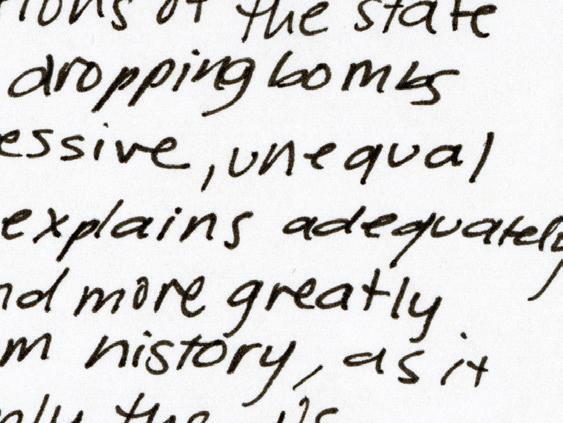 tions of the state
dropping bombs
essive, unequal
explains adequately
nd more greatly
m history, as it
nly the